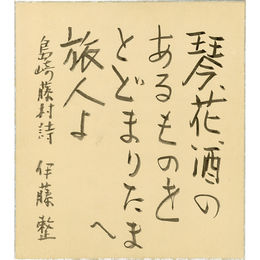 琴、花、酒の
あるものを
とどまりたまへ
旅人よ
島崎藤村詩 伊藤整